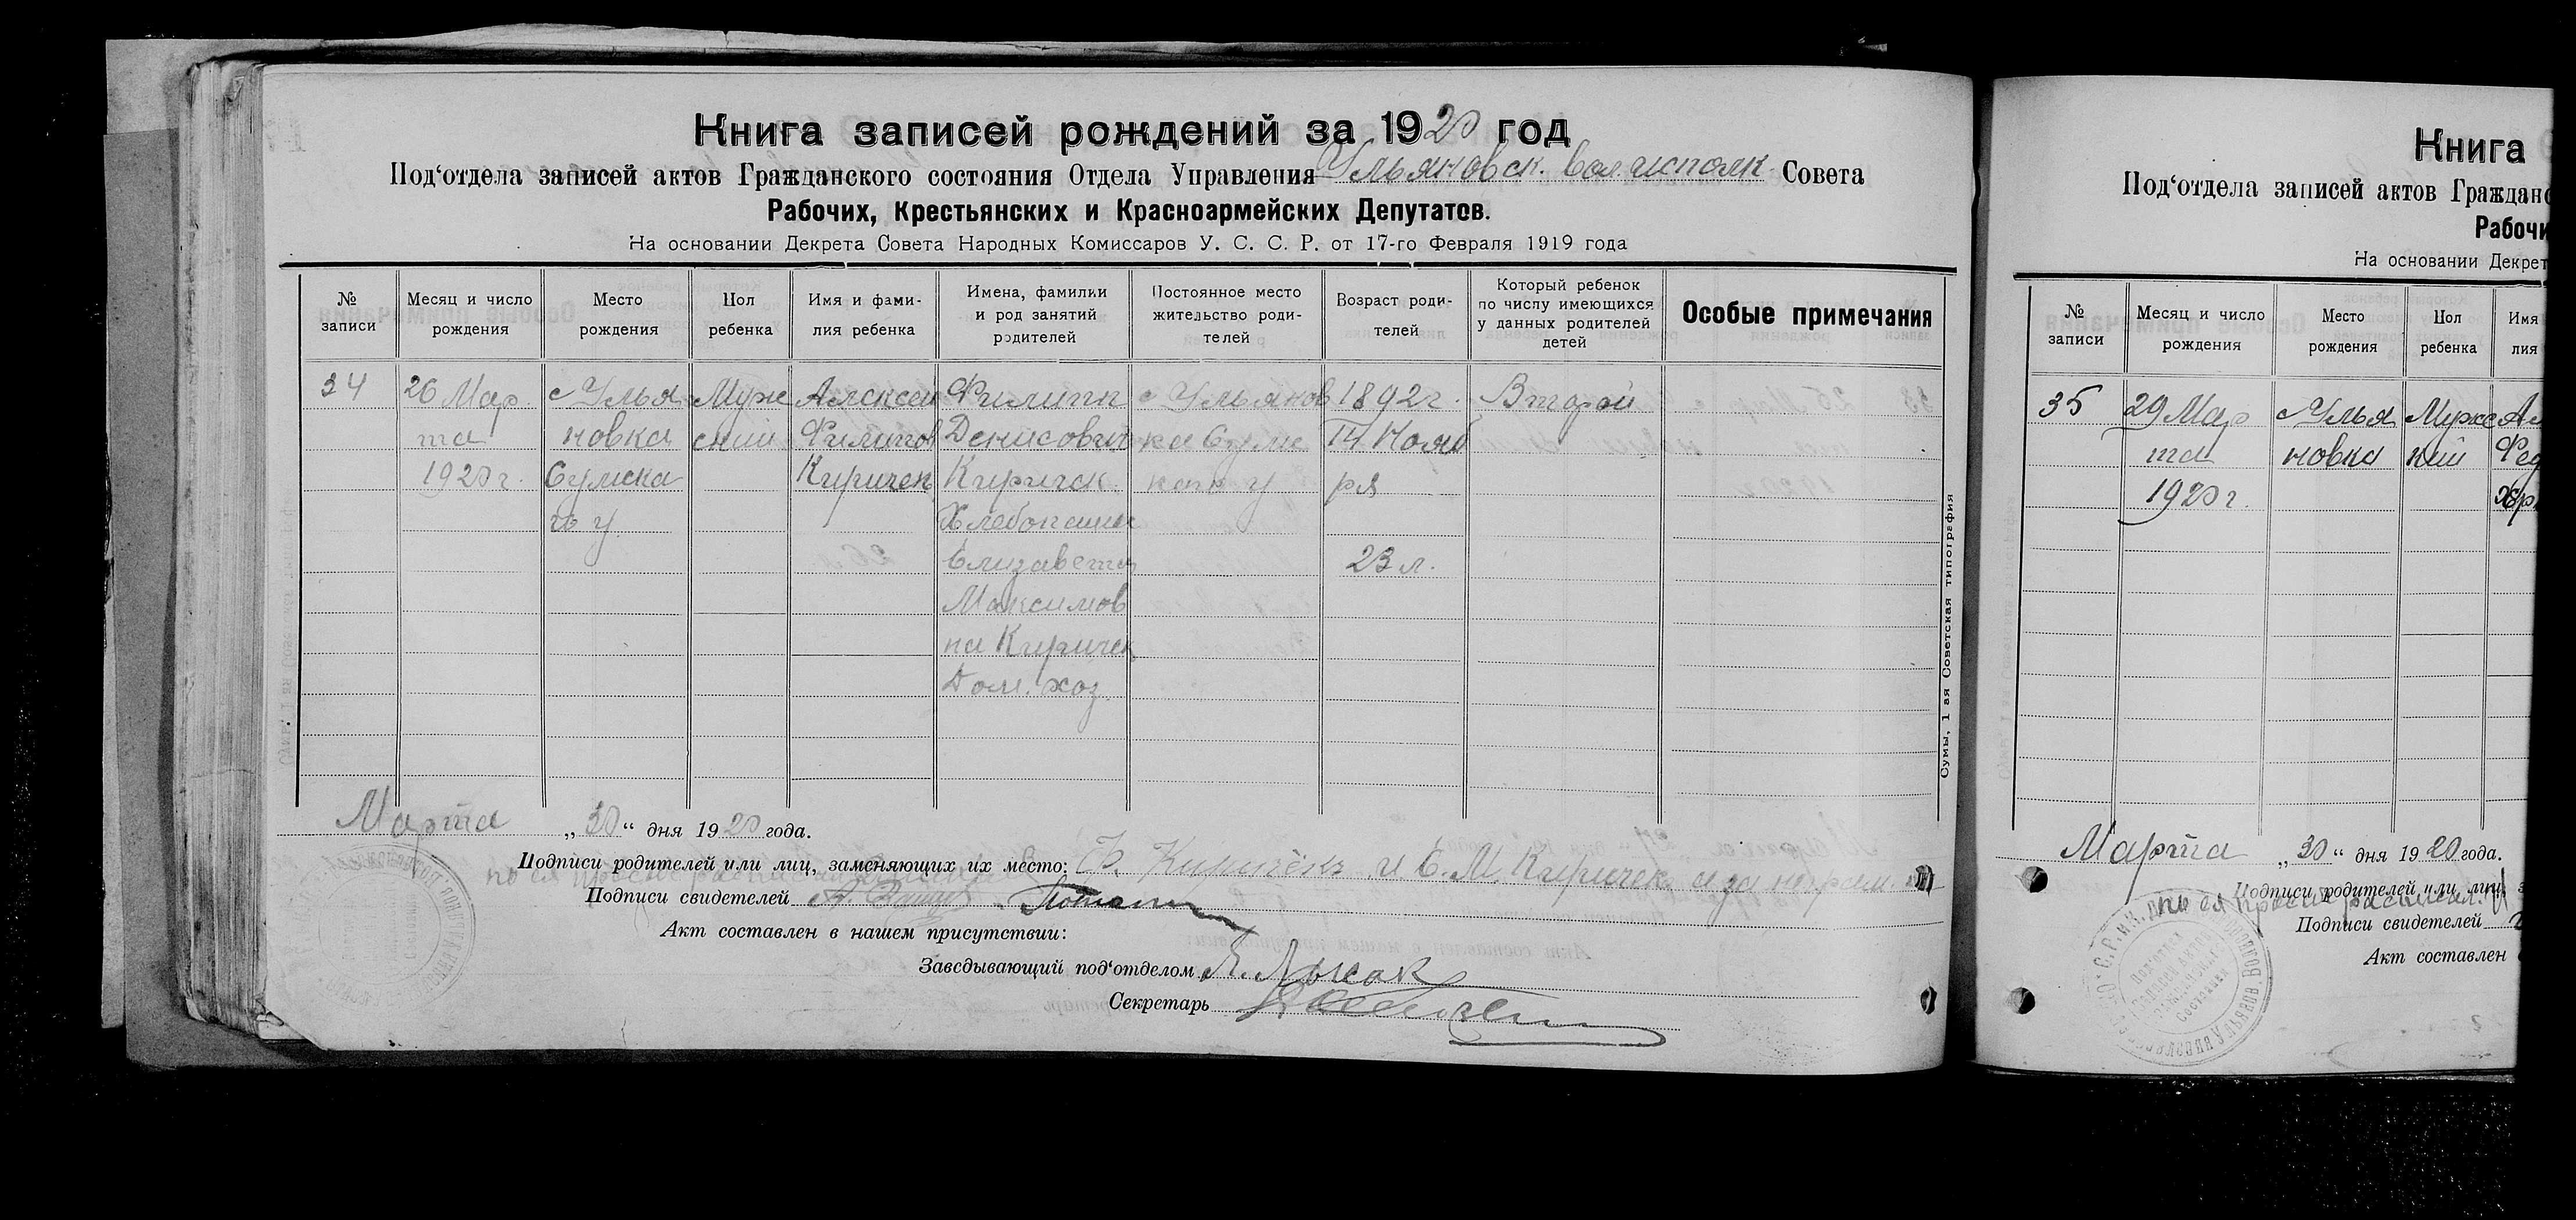 Книга записей рождений за 1920 год
Под‘отдела записей актов Гражданского состояния Отдела Управления Ульяновск. волисполк. Совета
Рабочих, Крестьянских и Красноармейских Депутатов.
На основании Декрета Совета Народных Комиссаров У. С. С. Р. от 17-го Февраля 1919 года
№ записи
Месяц и число рождения
Место рождения
Пол ребенка
Имя и фами-
лия ребенка
Имена, фамилии
и род занятий
родителей
Постоянное место
жительство роди-
телей
Возраст роди-
телей
Который ребенок
по числу имеющихся
у данных родителей
детей
Особые примечания
34 26 Мар с Улья Муж Алексей Филипп с Ульянов 1892 г. Второй
та новка ский Филипов Денисович ка Сумс 14 Нояб
1920 г. Сумска Киричек Киричек каго у ря
го у Хлебопашец
Елизавета 23 л.
Максимов
на Киричек
Дом. хоз.
Сумы, 1 ая Советская типография
Марта „30“ дня 1920 года.
Подписи родителей или лиц, заменяющих их место: Ф. Киричекъ и Е. М. Киричек а за неграм.
по ея просьбе
Подписи свидетелей
Акт составлен в нашем присутствии:
Заведывающий под‘отделом
Секретарь
Книга
Под‘отдела записей актов Гражданс
Рабочи
На основании Декрет
№ записи
Месяц и число рождения
Место рождения
Пол ребенка
Имя
лия
35 29 Мар с Улья Мужс Ал
та новка кий Фед
1920 г. Хр
Марта „30“ дня 1920 года.
Подписи родителей или лиц, з
по ея просьбе расписал.
Подписи свидетелей
Акт составлен